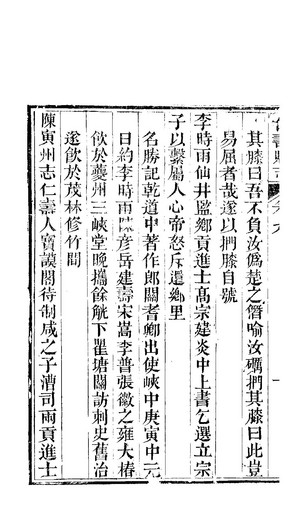 其膝曰吾不負汝僞楚之僭喻汝礪捫其膝曰此豈
易屈者哉遂以捫膝自號
李時雨仙井監鄉貢進士髙宗建炎中上書乞選立宗
子以繫屬人心帝怒斥還鄉里
名勝記乾道中著作郎關耆卿出使峽中庚寅中元
日約李時雨陳彦岳建壽宋嵩李普張徽之雍大椿
飲於夔州三峽堂晚攜餘觥下瞿塘關訪刺史舊治
遂飲於茂林修竹間
陳寅州志仁壽人寶謨閣待制咸之子漕司兩貢進士